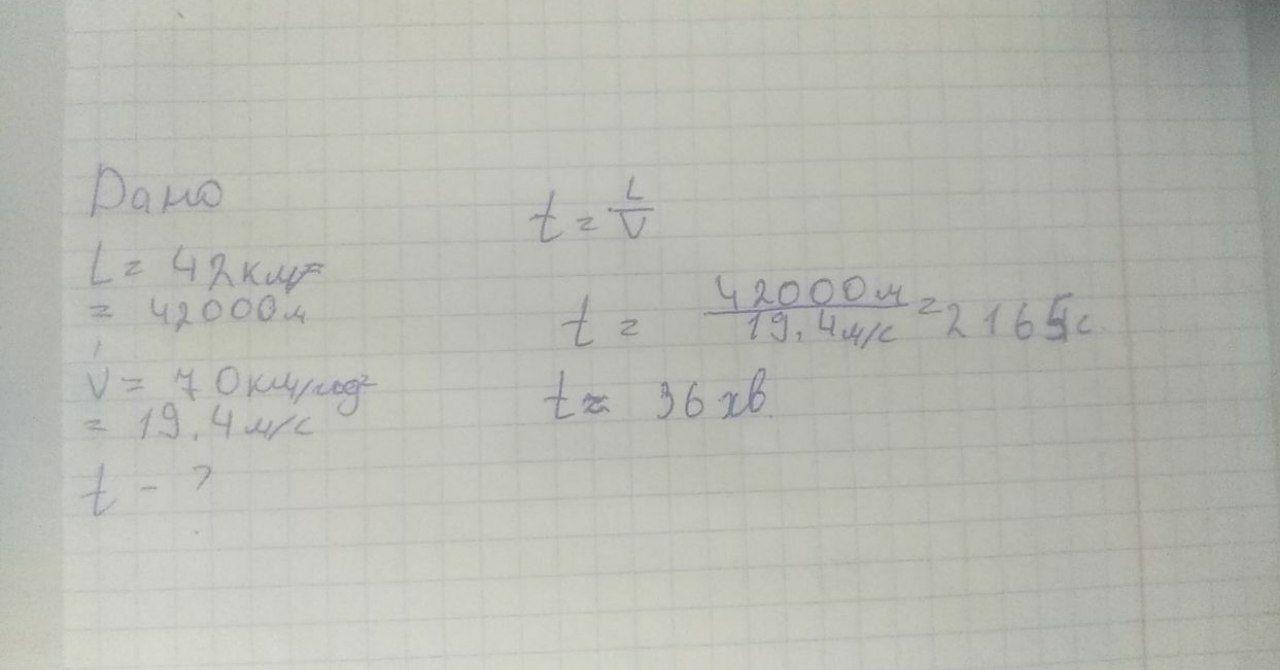 Дано
L = 42км=
= 42000м
V = 70км/год=
= 19,4м/с
t - ?
t = L/V
t = 42000м/19,4м/с = 2165с
t ≈ 36 хв.